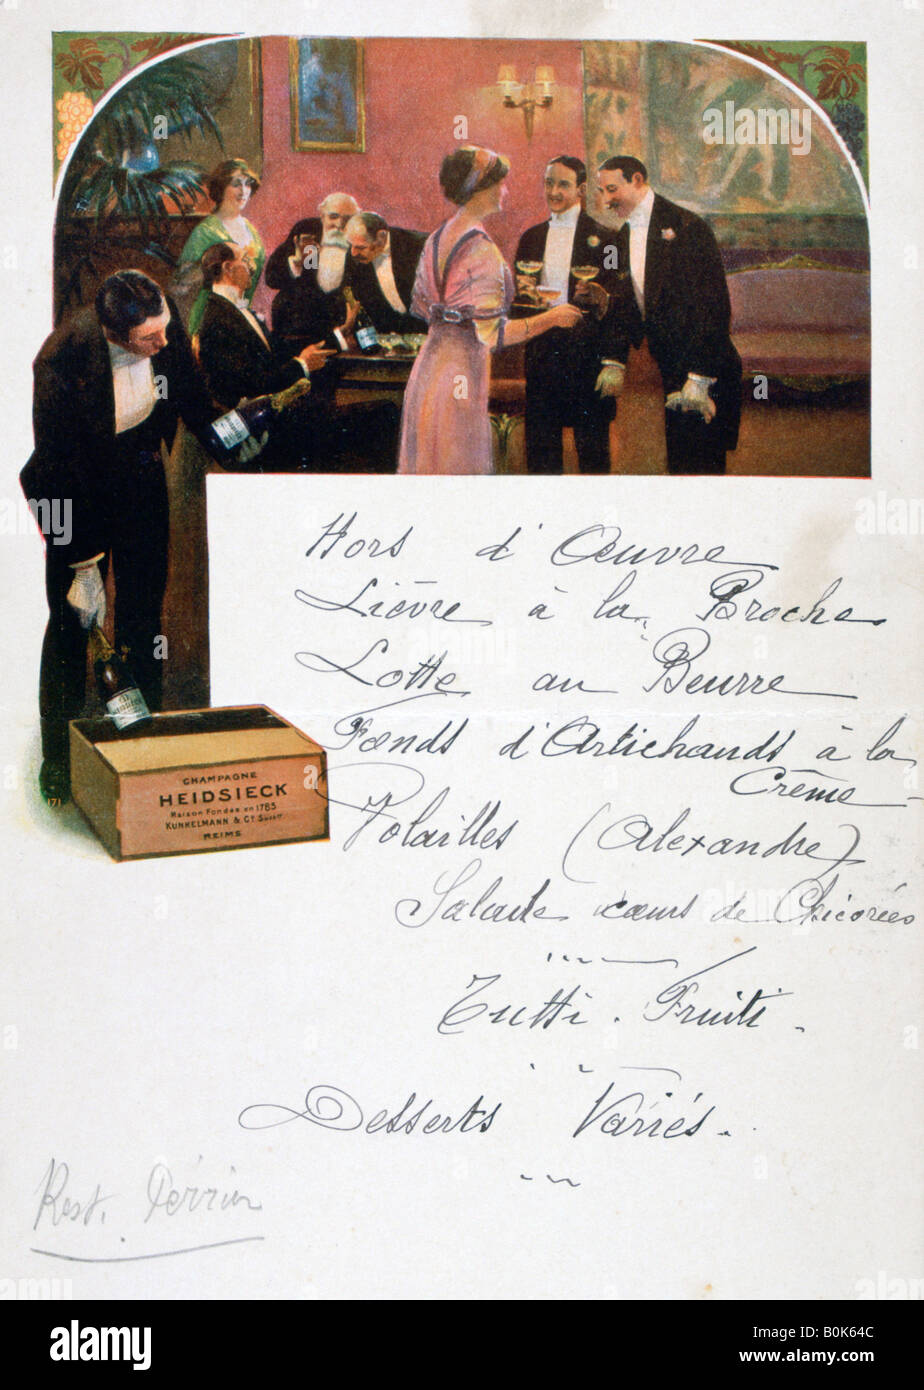 CHAMPAGNE
HEIDSIECK
Maison Fondée en 1785
KUNKELMANN & Cº Succrs
REIMS
171
Hors d'Œuvre
Lièvre à la Broche
Lotte au Beurre
Fonds d'Artichauds à la
Crême
Volailles (Alexandre)
Salade cœurs de Chicorées
Tutti-Fruiti.
Desserts Variés.
Rest. Perrin
alamy
Image ID: B0K64C
www.alamy.com